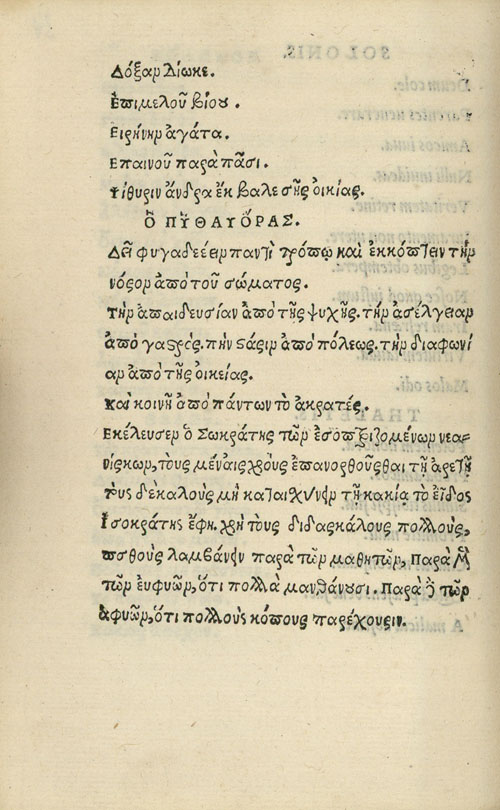 Δόξαρ Δίωκε.
Ἐπιμελοῦ βίου.
Ειρήνηρ ἀγάτα.
Επαινοῦ παρὰ πᾶσι.
Ψίθυριν ἄνδρα ἐκβαλε σῆς οἰκίας.
Ὁ ΠΥΘΑΥΌΡΑΣ.
Δεῖ φυγαδεύειρ παντὶ τρόπῳ καὶ ἐκκόπτειν τὴρ
νόσορ ἀπὸ τοῦ σώματος.
τὴρ ἀπαιδευσίαν ἀπὸ τῆς ψυχῆς. τὴρ ἀσέλγειαρ
ἀπὸ γαςρός. τὴν ςάσιρ ἀπὸ πόλεως. τὴρ διαφωνί
αρ ἀπὸ τῆς οἰκείας.
Καὶ κοινῇ ἀπὸ πάντων τὸ ἀκρατές.
Εκέλευσερ ὁ Σωκράτης τῶρ ἐσοπτριζομένωρ νεα-
νίσκωρ, τοὺς μὲν αἰσχροὺς ἐπανορθοῦσθαι τῇ ἀρετῇ
τοὺς δὲ καλοὺς μὴ καταισχύνειρ τῇ κακίᾳ τὸ εἶδος
Ἰσοκράτης ἔφη. χρὴ τοὺς διδασκάλους πολλοὺς,
μισθοὺς λαμβάνειν παρὰ τῶρ μαθητῶρ, Παρὰ μὲν
τῶρ ευφυῶρ, ὅτι πολλὰ μανθάνουσι. Παρὰ δὲ τῶρ
ἀφυῶρ, ὅτι πολλοὺς κόπους παρέχουσιν.